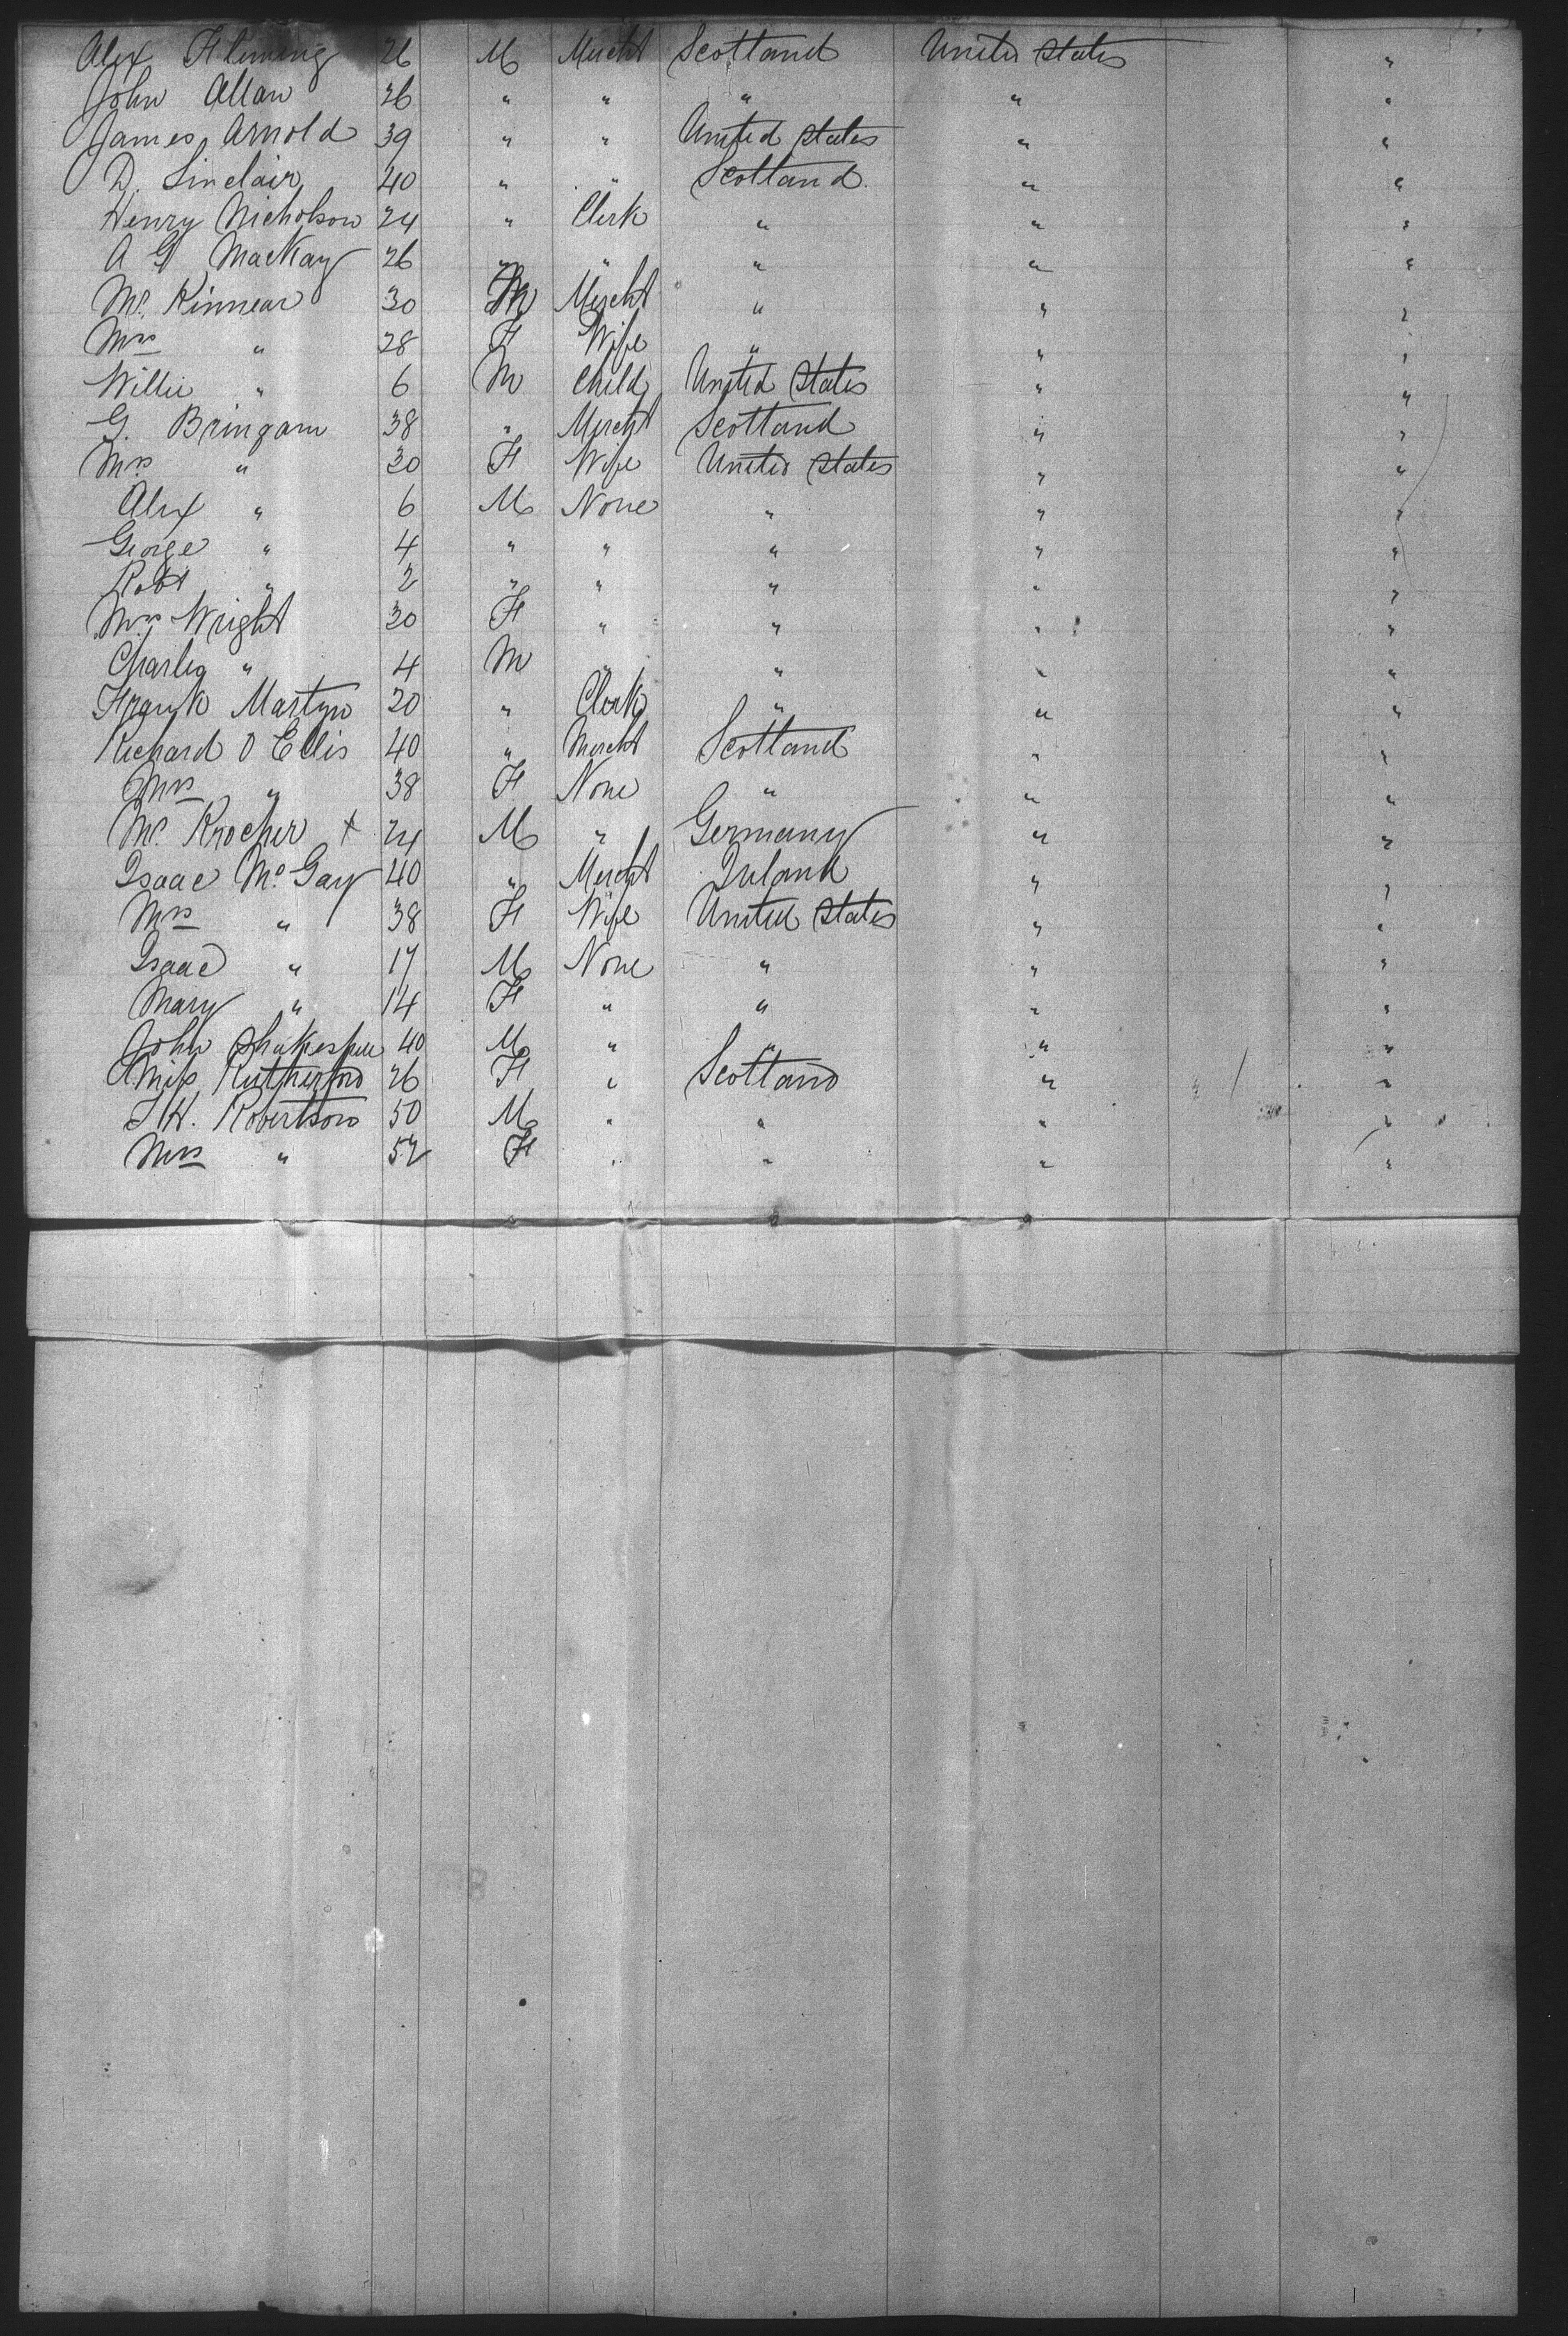 Alex Fleming 26 M Mercht Scotland United States "
John Allan 26 " " " " "
James Arnold 39 " " United States " "
D. Sinclair 40 " " Scotland. " "
Henry Nicholson 24 " Clerk " " "
A G MacKay 26 " " " " "
Mr. Kinnear 30 M Mercht " " "
Mrs " 28 F Wife " " "
Willie " 6 M Child United States " "
G. Bringam 38 " Mercht Scotland " "
Mrs " 30 F Wife United States " "
Alex " 6 M None " " "
George " 4 " " " " "
Robt " 2 " " " " "
Mrs Wright 30 F " " " "
Charley " 4 M " " " "
Frank Martyn 20 " Clerk " " "
Richard O Ellis 40 " Mercht Scotland " "
Mrs " 38 F None " " "
Mr. Krocher x 24 M " Germany " "
Isaac Mc Gay 40 " Mercht Ireland " "
Mrs " 38 F Wife United States " "
Isaac " 17 M None " " "
Mary " 14 F " " " "
John Shakespeare 40 M " " " "
Miss Rutherford 26 F " Scotland " "
J H. Robertson 50 M " " " "
Mrs " 52 F " " " "